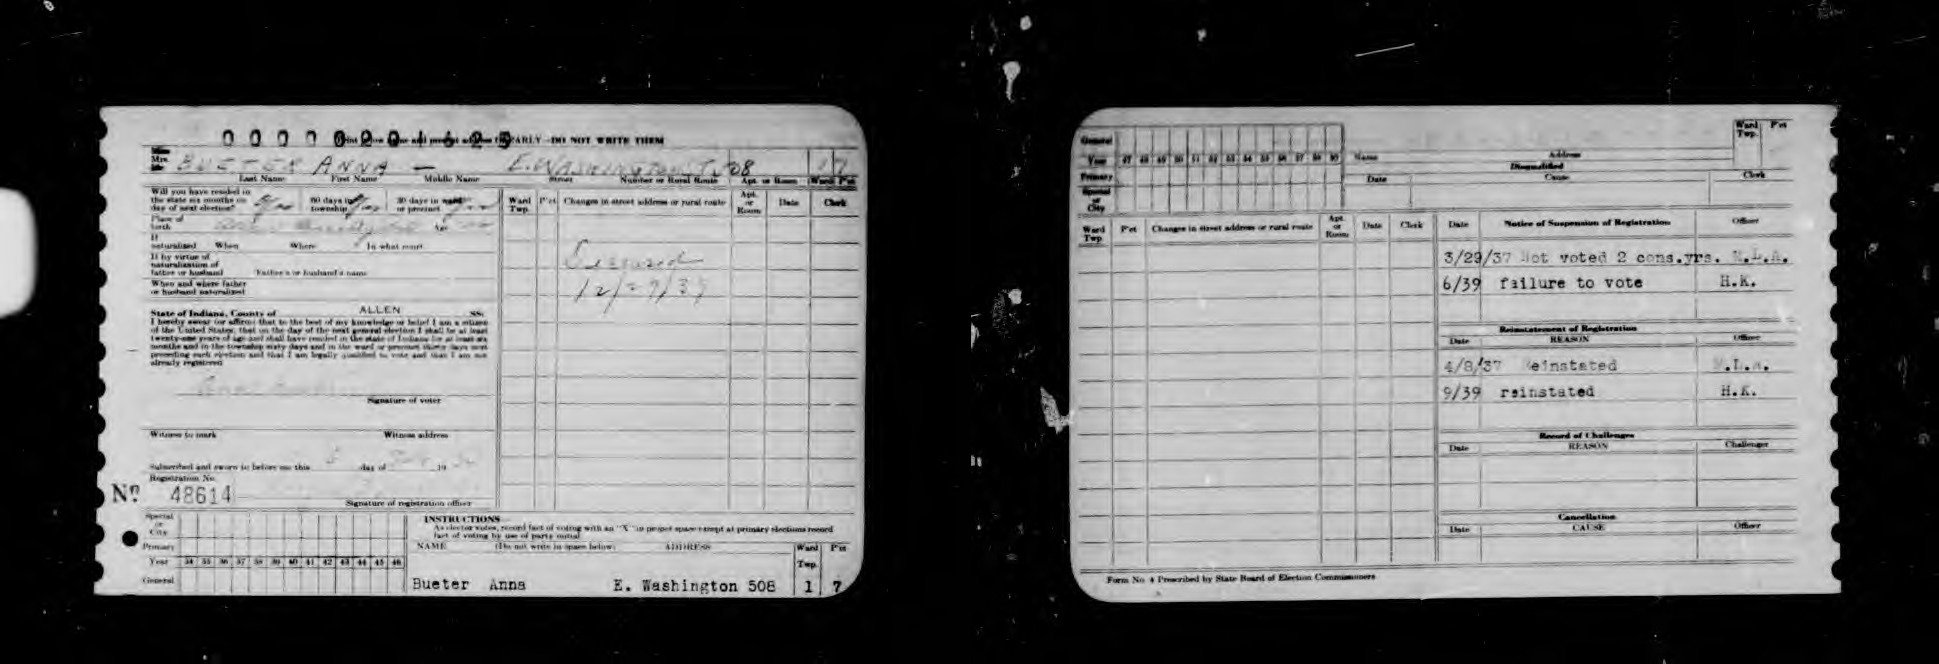 PRINT your name and present address CLEARLY—DO NOT WRITE THEM
Miss
Mrs. BUETER ANNA — E. WASHINGTON ST. 508 1 7
Mr.
Last Name First Name Middle Name Street Number or Rural Route Apt. or Room Ward P'ct
Will you have resided in
the state six months on 60 days in 30 days in ward
day of next election? township or precinct
Place of
birth
If
naturalized When Where In what court
If by virtue of
naturalization of
father or husband Father's or husband's name
When and where father
or husband naturalized
State of Indiana, County of ALLEN SS:
I hereby swear (or affirm) that to the best of my knowledge or belief I am a citizen
of the United States, that on the day of the next general election I shall be at least
twenty-one years of age and shall have resided in the state of Indiana for at least six
months and in the township sixty days and in the ward or precinct thirty days next
preceding such election and that I am legally qualified to vote and that I am not
already registered
Signature of voter
Witness to mark Witness address
Subscribed and sworn to before me this 5 day of 19
Registration No.
No 48614
Signature of registration officer
Ward Twp. P'ct Changes in street address or rural route Apt. or Room Date Clerk
12/27/39
Special
or
City
Primary
Year 34 35 36 37 38 39 40 41 42 43 44 45 46
General
INSTRUCTIONS—
As elector votes, record fact of voting with an "X" in proper space except at primary elections record
fact of voting by use of party initial
NAME (Do not write in space below) ADDRESS Ward Twp. P'ct
Bueter Anna E. Washington 508 1 7
General
Year 47 48 49 50 51 52 53 54 55 56 57 58 59
Primary
Special
or
City
Name Address Ward Twp. P'ct
Disqualified
Date Cause Clerk
Ward Twp. P'ct Changes in street address or rural route Apt. or Room Date Clerk
Date Notice of Suspension of Registration Officer
3/29/37 Not voted 2 cons.yrs. M.L.A.
6/39 failure to vote H.K.
Reinstatement of Registration
Date REASON Officer
4/8/37 Reinstated M.L.A.
9/39 reinstated H.K.
Record of Challenges
Date REASON Challenger
Cancellation
Date CAUSE Officer
Form No. 4 Prescribed by State Board of Election Commissioners